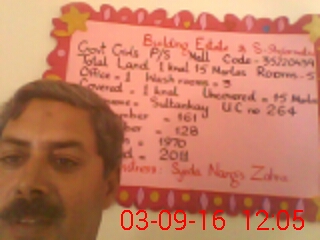 Building Estate & S.
Govt Girls P/S Mall Code - 35220459
Total Land 1 knal 15 Marlas Rooms - 5
Office = 1 Wash rooms = 3
Covered = 1 knal Uncovered = 15 Marla
Sultankay U C no 264
= 161
= 128
= 1970
= 2011
Syeda Nargis Zahra
03-09-16 12:05